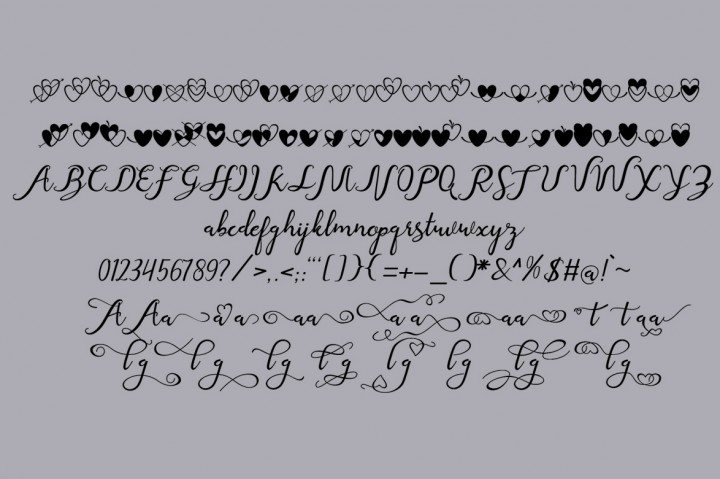 ABCDEFGHIJKLMNOPQRSTUVWXYZ
abcdefghijklmnopqrstuvwxyz
0123456789?/>,.<;:'"[]}{=+-_()*&^%$#@!`~
A Aa a a aa a a aa t taa
lg lg lg lg lg lg lg lg